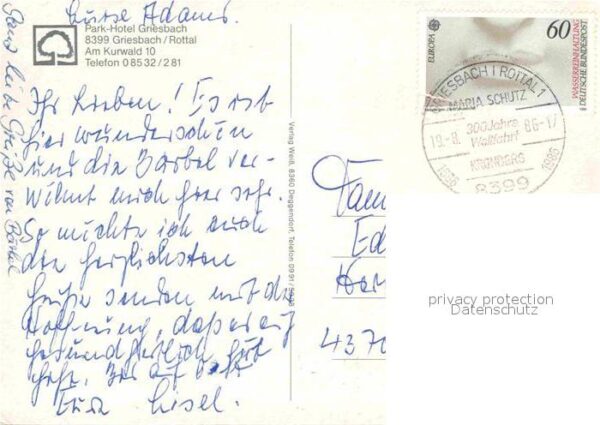 Park-Hotel Griesbach
8399 Griesbach / Rottal
Am Kurwald 10
Telefon 0 85 32 / 2 81
Ihr Lieben! Es ist
hier wunderschön
und die Bärbel ver-
wöhnt mich hier sehr.
So möchte ich euch
die herzlichsten
Grüße senden mit der
Hoffnung, daß es euch
gesundheitlich gut
geht.
Eure Liesel.
Ganz liebe Grüße von Bärbel
Verlag Weiß, 8360 Deggendorf, Telefon 0991/
EUROPA
60
WASSERREINHALTUNG
DEUTSCHE BUNDESPOST
GRIESBACH I ROTTAL 1
MARIA SCHUTZ
19.-8. 86-17
300 Jahre
Wallfahrt
KRONBERG
1686 1986
8399
Fam
Ed
437
privacy protection
Datenschutz